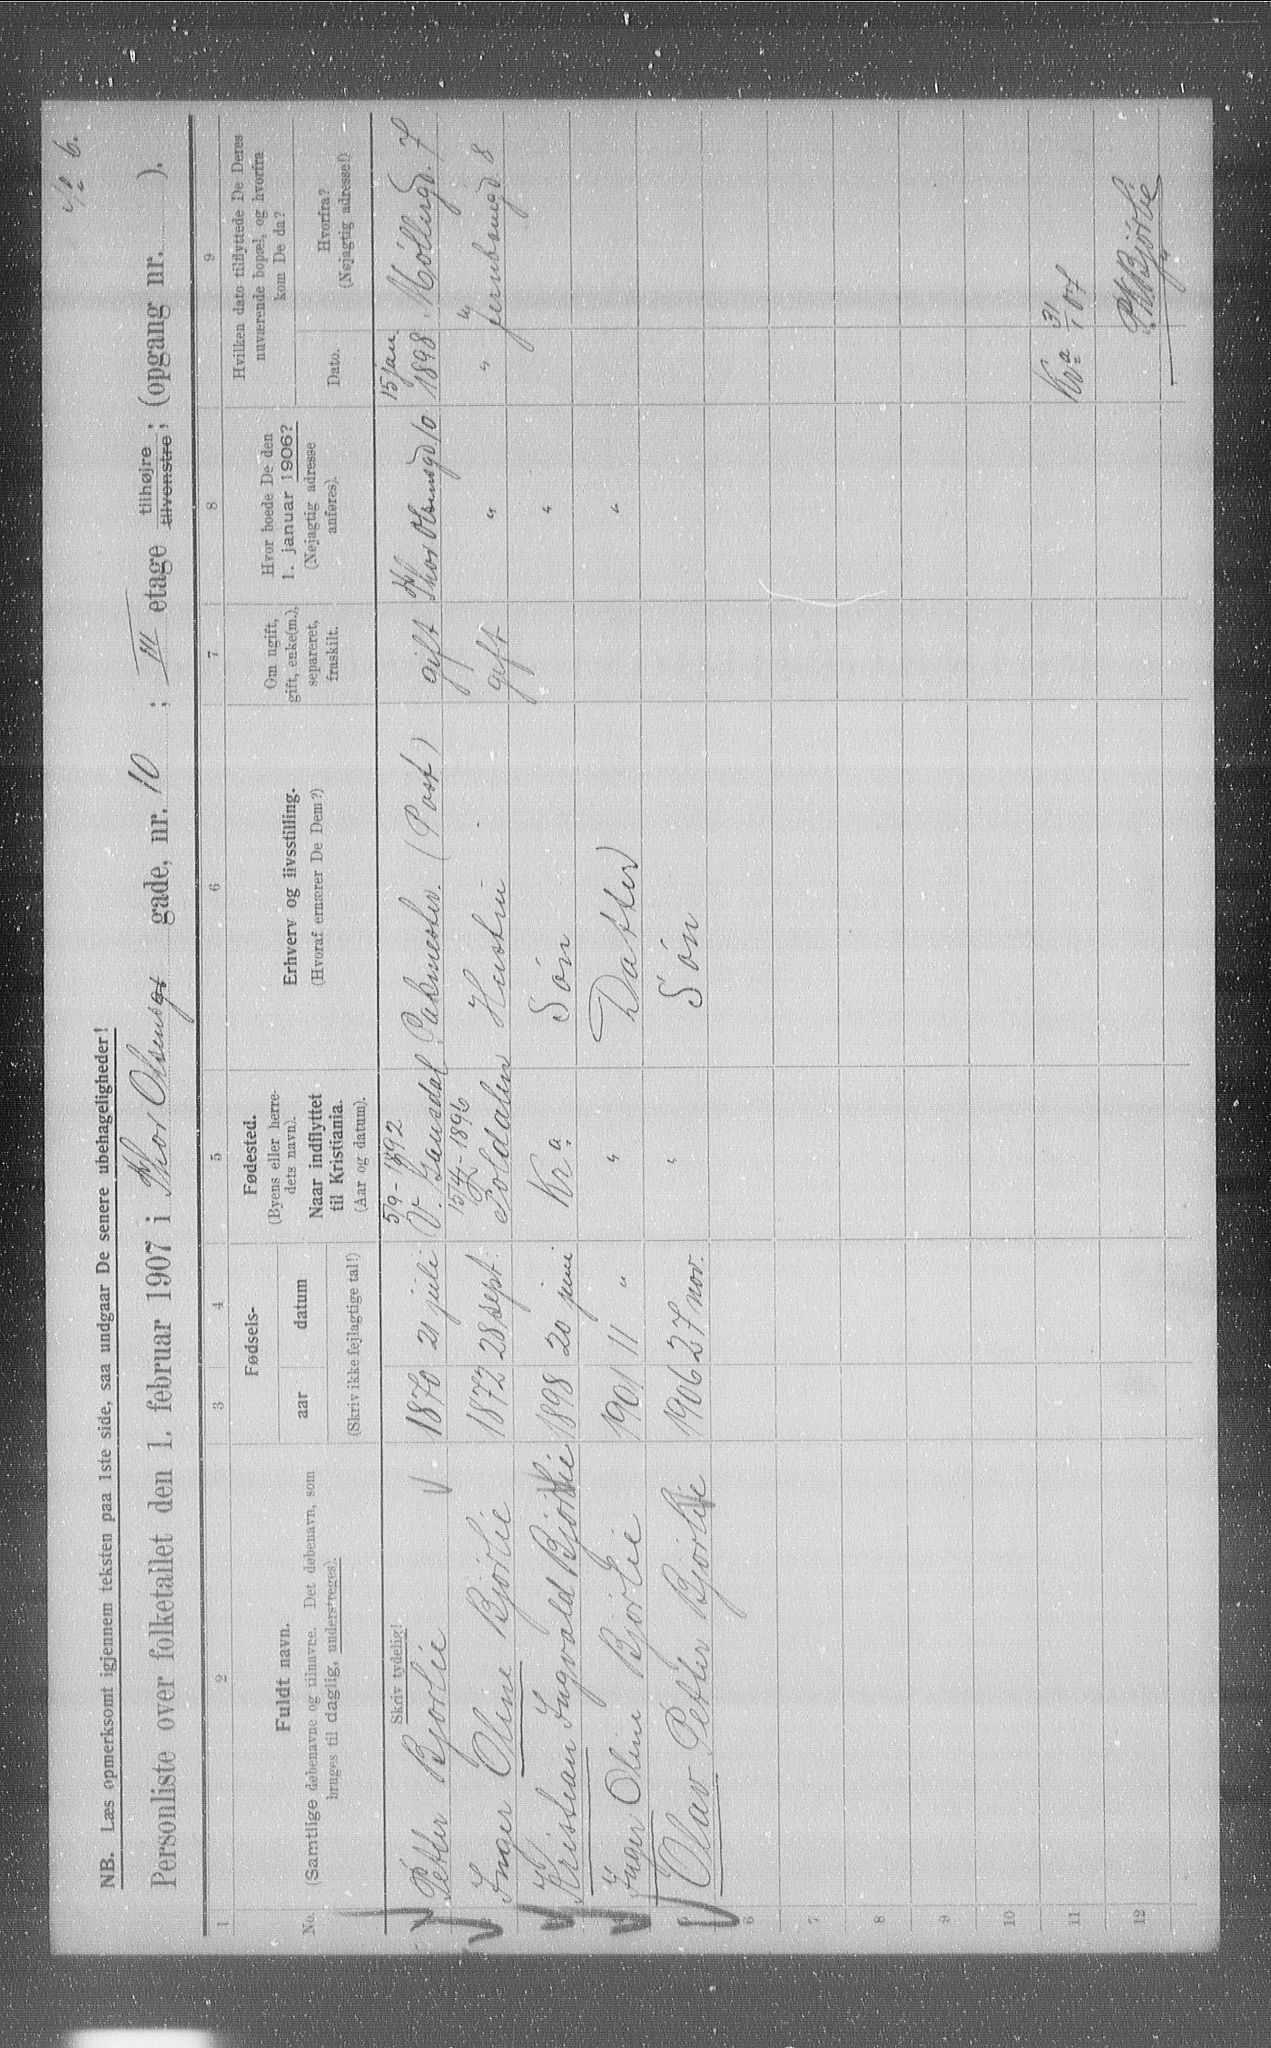 NB. Læs opmerksomt igjennem teksten paa 1ste side, saa undgaar De senere ubehageligheder!
Personliste over folketallet den 1. februar 1907 i Thor Olsensgt gade, nr. 10 ; III etage tilhøjre tilvenstre; (opgang nr. ).
1 2 3 4 5 6 7 8 9
No.
Fuldt navn.
(Samtlige døbenavne og tilnavne. Det døbenavn, som
bruges til daglig, understreges).
Skriv tydelig!
Fødsels-
aar datum
(Skriv ikke fejlagtige tal!)
Fødested.
(Byens eller herre-
dets navn).
Naar indflyttet
til Kristiania.
(Aar og datum).
Erhverv og livsstilling.
(Hvoraf ernærer De Dem?)
Om ugift,
gift, enke(m.),
separeret,
fraskilt.
Hvor boede De den
1. januar 1906?
(Nøjagtig adresse
anføres).
Hvilken dato tilflyttede De Deres
nuværende bopæl, og hvorfra
kom De da?
Dato.
Hvorfra?
(Nøjagtig adresse!)
5/9 - 1892 15 jan.
Petter Bjørlie 1870 21 juli V. Gausdal Pakmester. (Post) gift Thor Olsensgd 10 1898 Möllergd. 7
15/4 - 1896
Inger Oline Bjørlie 1872 28 sept. Soldalen Hustru gift " " " 8
Kristian Ingvald Bjørlie 1898 20 juni Kra Sön "
Inger Oline Bjørlie 1901 11 " " Datter "
Olav Petter Bjørlie 1906 27 nov. " Sön
6
7
8
9
10
11 Kra 31/1 07
12 P. Bjørlie